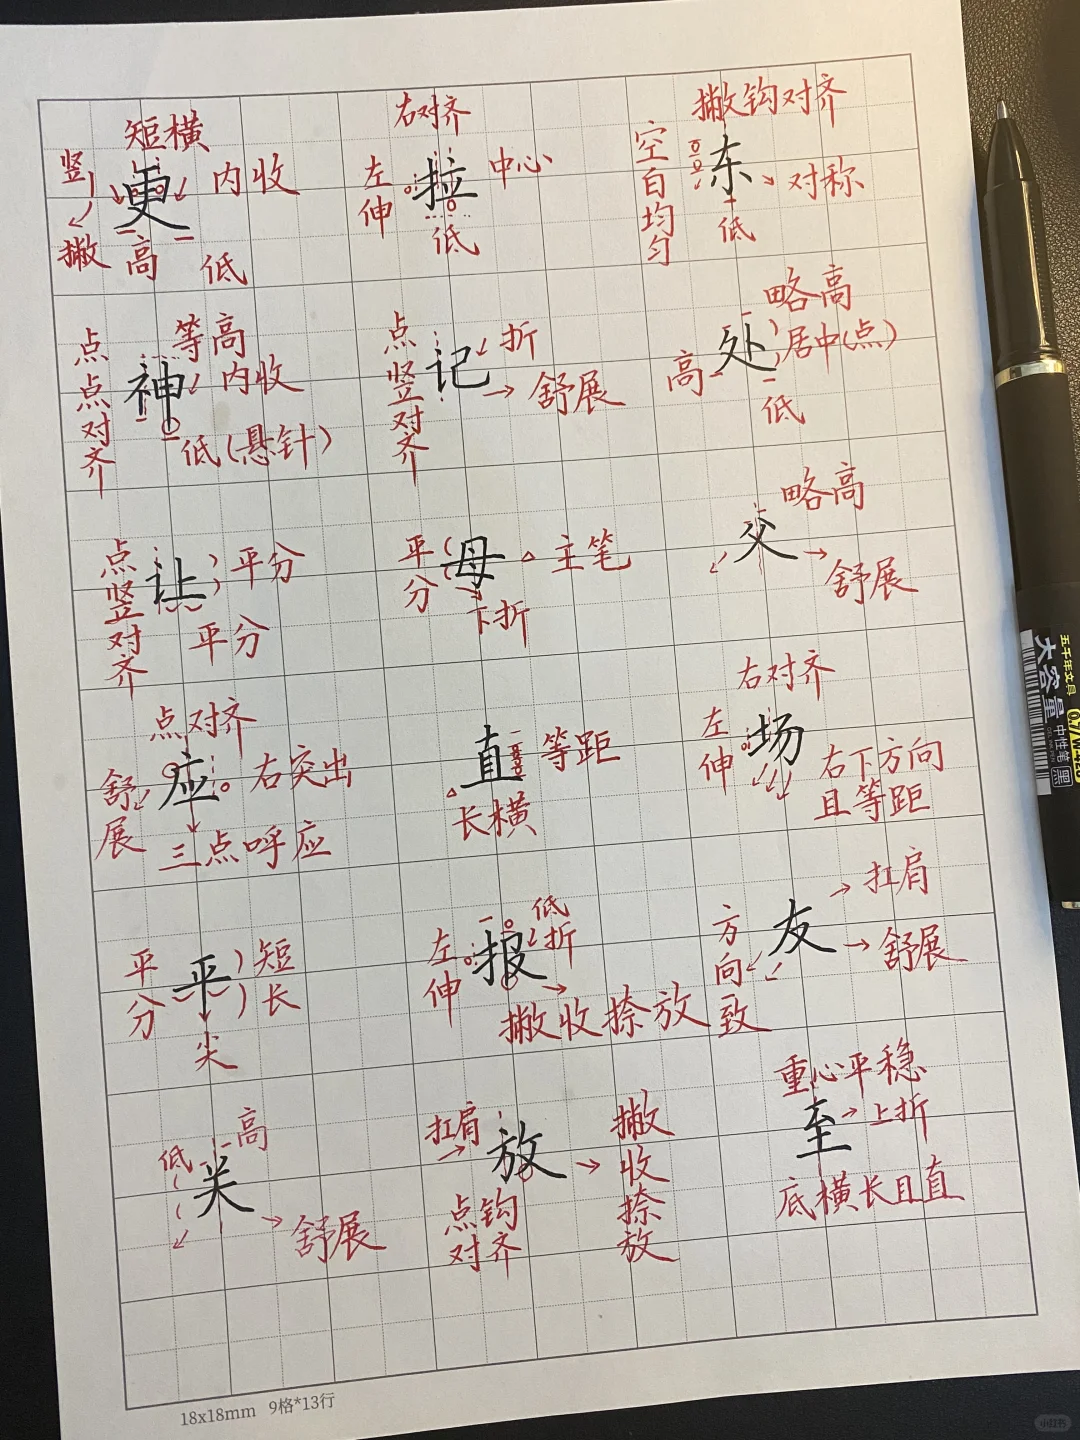 短横
竖
更
内收
撇
高
低
右对齐
左伸
拉
中心
低
撇钩对齐
空白均匀
东
对称
低
点点对齐
等高
神
内收
低(悬针)
点竖对齐
记
折
舒展
略高
处
居中(点)
高
低
点竖对齐
让
平分
平分
平分
母
主笔
下折
略高
交
舒展
点对齐
舒展
应
右突出
三点呼应
直
等距
长横
右对齐
左伸
场
右下方向
且等距
平分
平
短
长
尖
左伸
报
低
折
撇收捺放
方向致
友
扛肩
舒展
高
低
关
舒展
扛肩
放
点钩
对齐
撇收捺放
重心平稳
至
上折
底横长且直
18x18mm 9格*13行
五千年文具
大容量
0.7
中性笔
黑
小红书